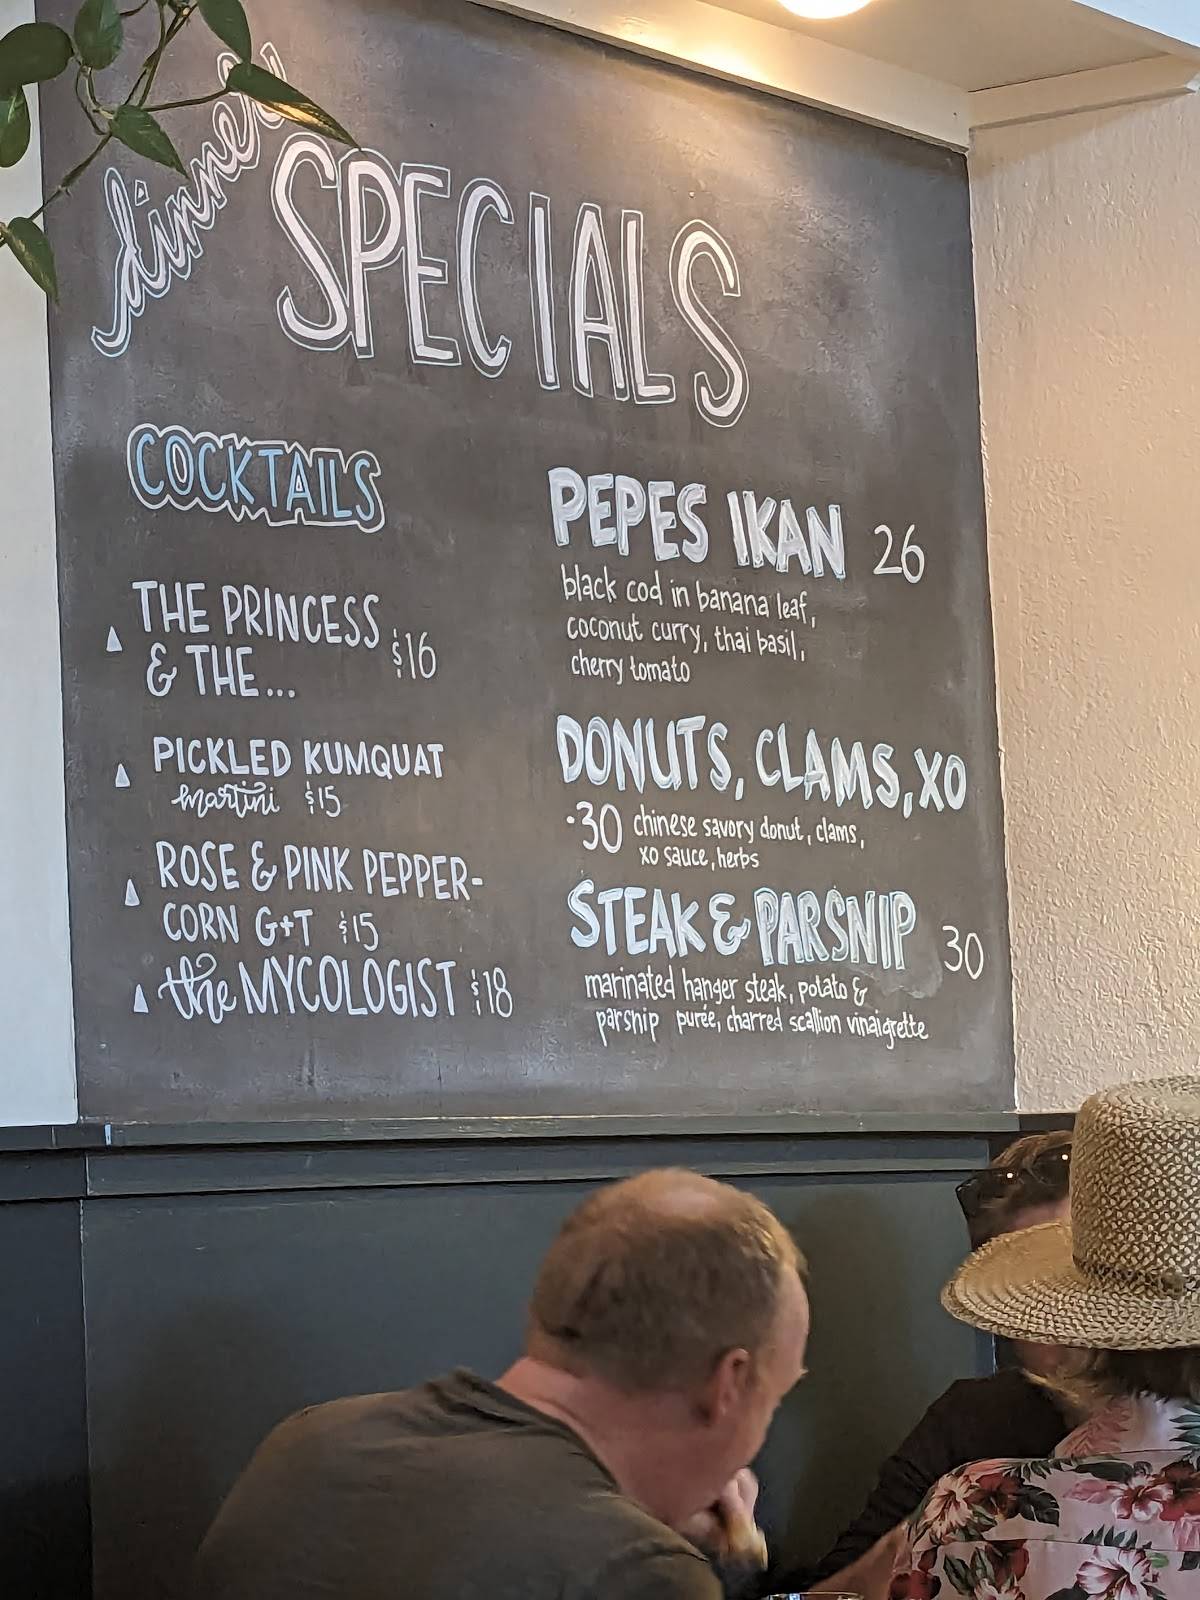 dinner
SPECIALS
COCKTAILS
THE PRINCESS
& THE... $16
PICKLED KUMQUAT
martini $15
ROSE & PINK PEPPER-
CORN G+T $15
the MYCOLOGIST $18
PEPES IKAN 26
black cod in banana leaf,
coconut curry, thai basil,
cherry tomato
DONUTS, CLAMS, XO
·30 chinese savory donut, clams,
xo sauce, herbs
STEAK & PARSNIP 30
marinated hanger steak, potato &
parship purée, charred scallion vinaigrette